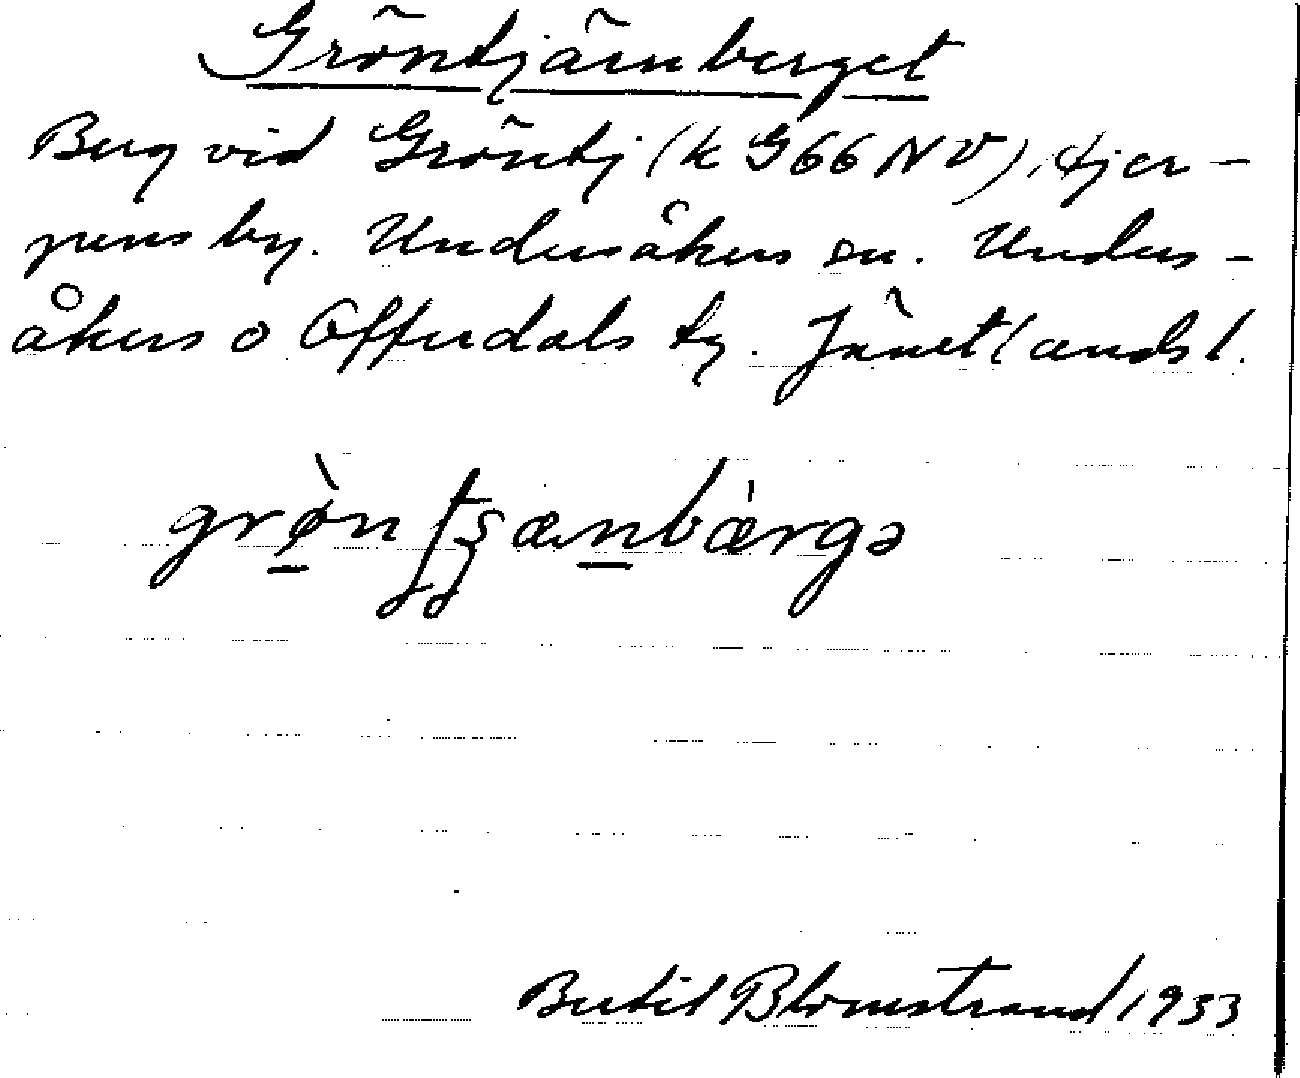 Gröntjärnberget
Berg vid Gröntj (k G66 NV),
by. Undersåkers sn. Unders-
åkers o Offerdals tg. Jämtlands l.
Bertil Blomstrand 1933